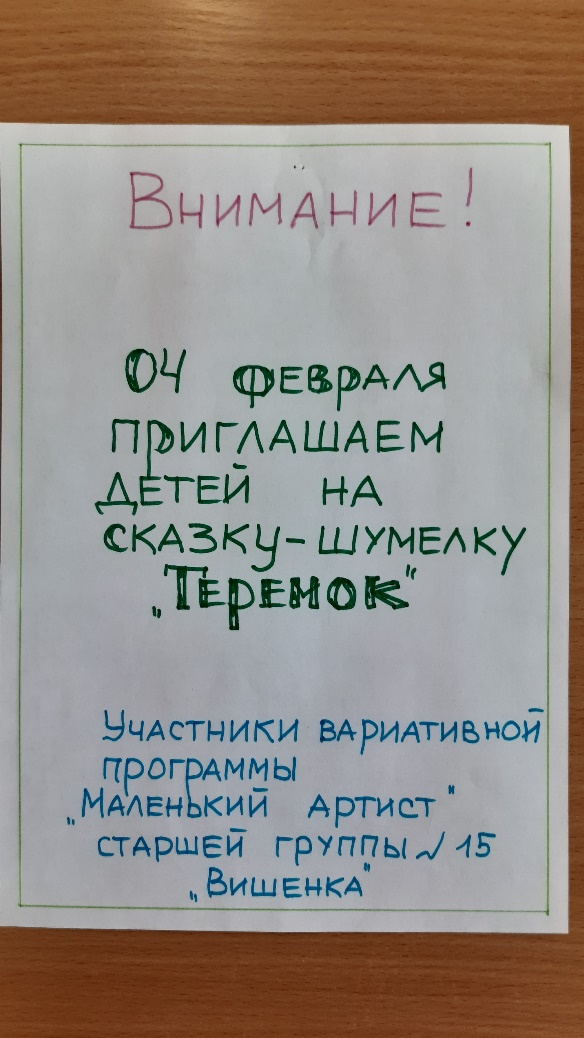 Внимание!
04 февраля
приглашаем
детей на
сказку-шумелку
„Теремок"
Участники вариативной
программы
„Маленький артист"
старшей группы №15
„Вишенка"